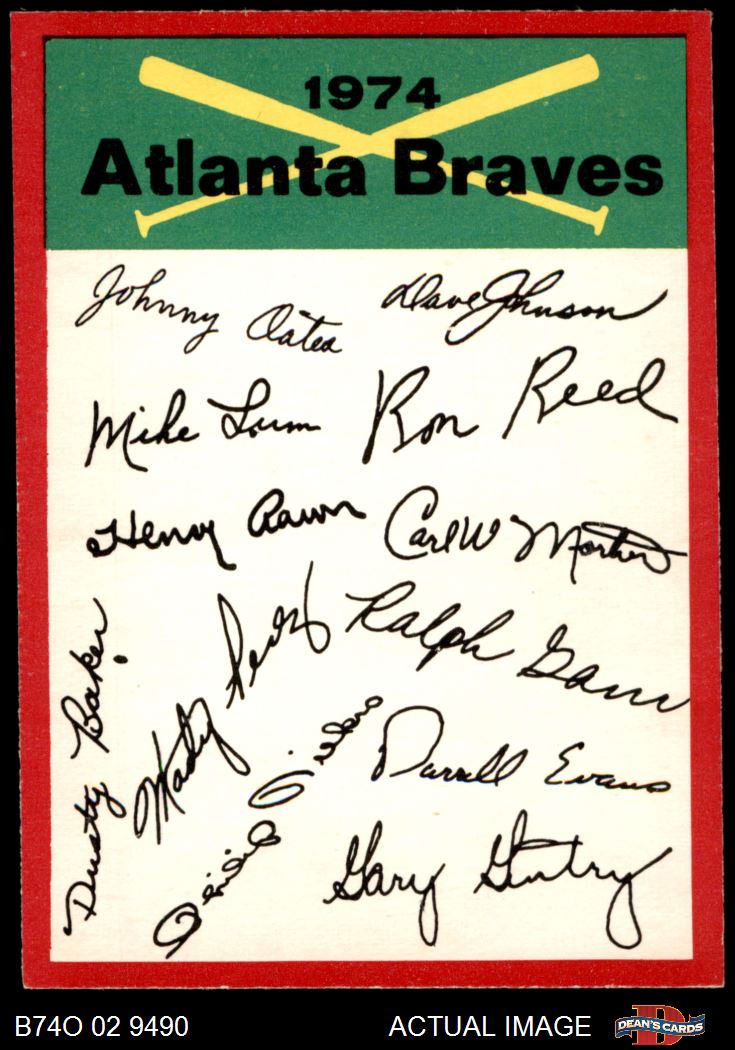 1974
Atlanta Braves
Johnny Oates
Dave Johnson
Mike Lum
Ron Reed
Henry Aaron
Carl W Morton
Ralph Garr
Dusty Baker
Darrell Evans
Gary Gentry
B74O 02 9490
ACTUAL IMAGE
DEAN'S CARDS